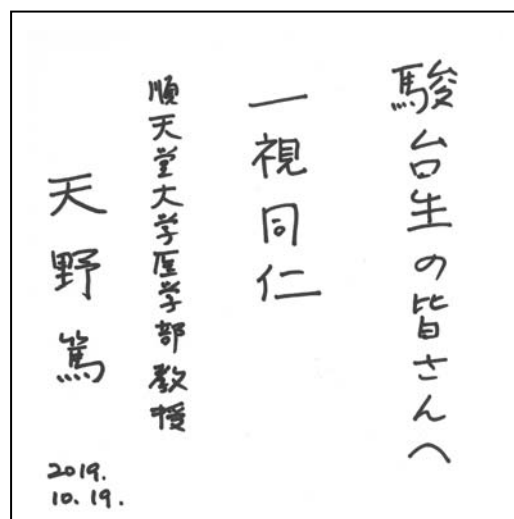 駿台生の皆さんへ
一視同仁
順天堂大学医学部教授
天野篤
2019.
10.19.